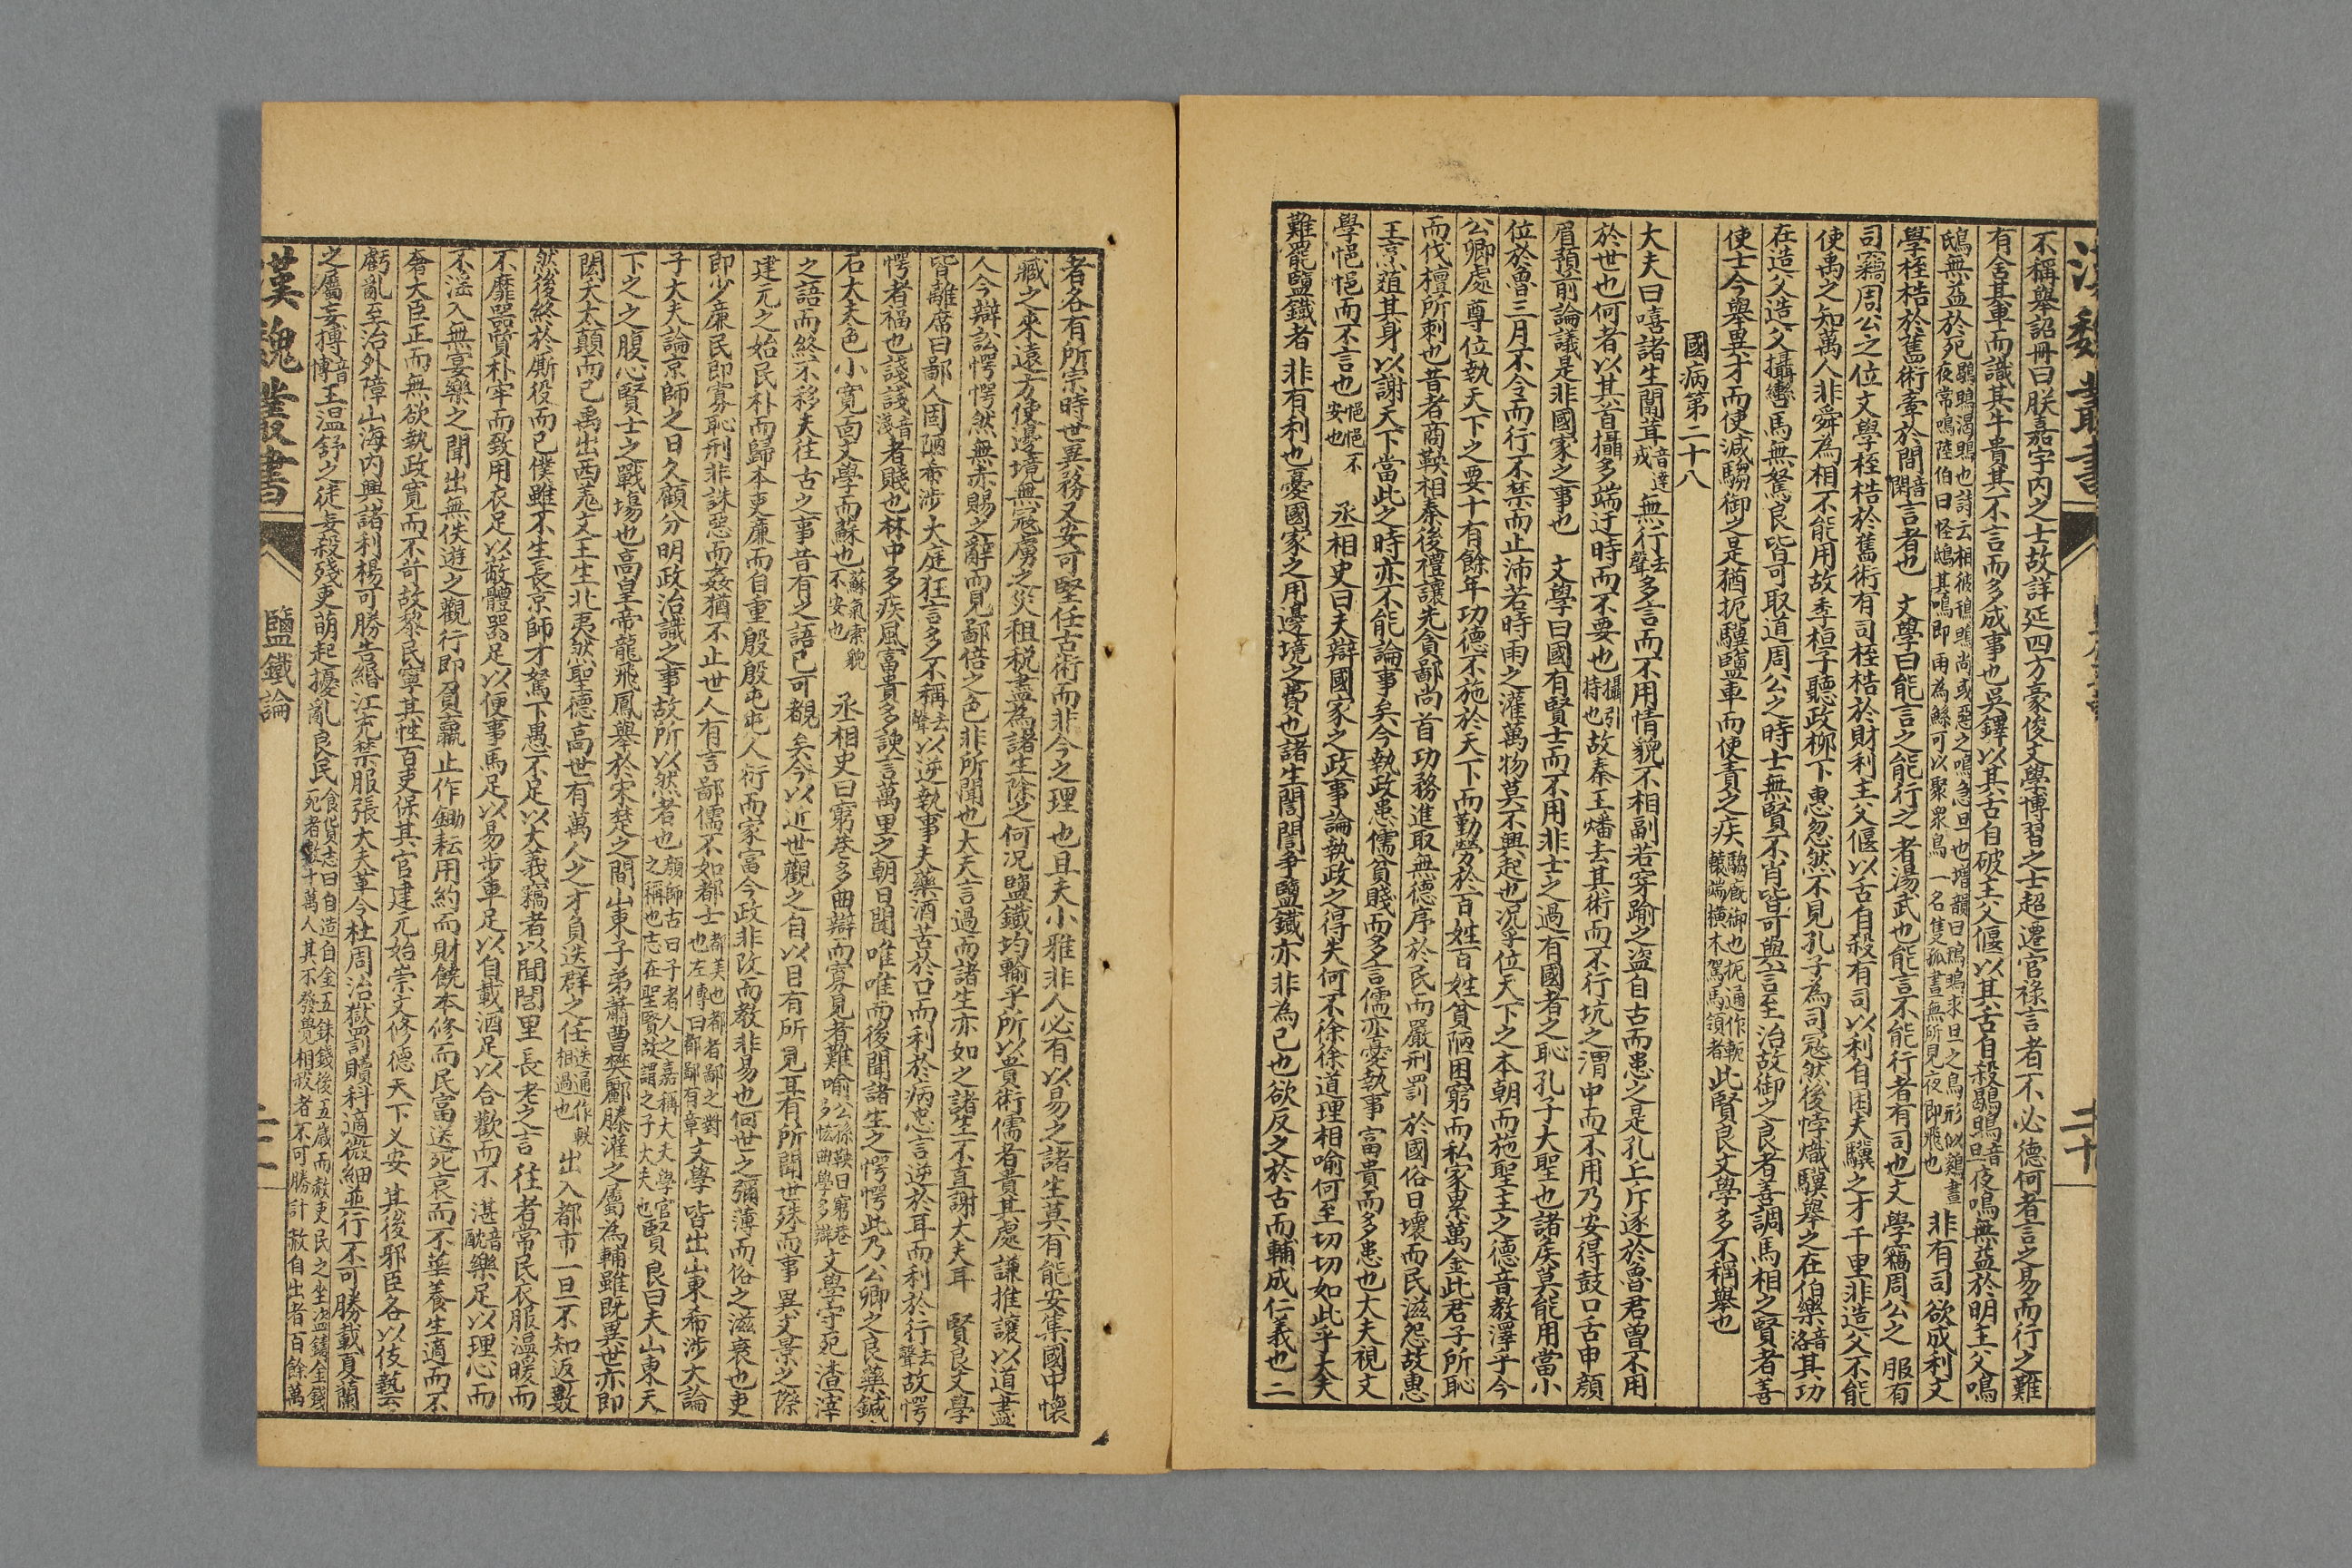 漢魏叢書
二十
不稱舉詔冊曰朕嘉宇內之士故詳延四方豪俊文學博習之士超遷官祿言者不必德何者言之易而行之難
有舍其車而識其牛貴其不言而多成事也吳鐸以其舌自破主父偃以其舌自殺鶡鴠音旦夜鳴無益於明主父鳴
鴟無益於死鶡鴠渴鴠也詩云相彼鶡鴠尚或惡之鳴急旦也增韻曰鶡鴠求旦之鳥形似雞晝夜常鳴陸佃曰怪鴟其鳴即雨為鯀可以聚衆鳥一名隻狐晝無所見夜即飛也非有司欲成利文
學桎梏於舊術牽於間音閑言者也　文學曰能言之能行之者湯武也能言不能行者有司也文學竊周公之服有
司竊周公之位文學桎梏於舊術有司桎梏於財利主父偃以舌自殺有司以利自困夫驥之才千里非造父不能
使禹之知萬人非舜為相不能用故季桓子聽政柳下惠忽然不見孔子為司寇然後悖熾驥舉之在伯樂音洛其功
在造父造父攝轡馬無駑良皆可取道周公之時士無賢不肖皆可與言至治故御之良者善調馬相之賢者善
使士今舉異才而使減騶御之是猶扼驥鹽車而使責之疾騶廐御也扼通作軛轅端橫木駕馬領者此賢良文學多不稱舉也
國病第二十八
大夫曰嘻諸生闒茸音達戎無行去聲多言而不用情貌不相副若穿踰之盜自古而患之是孔丘斥逐於魯君曾不用
於世也何者以其首攝多端迂時而不要也攝引持也故秦王燔去其術而不行坑之渭中而不用乃安得鼓口舌申顏
眉預前論議是非國家之事也　文學曰國有賢士而不用非士之過有國者之恥孔子大聖也諸矦莫能用當小
位於魯三月不令而行不禁而止沛若時雨之灌萬物莫不興起也況乎位天下之本朝而施聖主之德音教澤乎今
公卿處尊位執天下之要十有餘年功德不施於天下而勤勞於百姓百姓貧陋困窮而私家累萬金此君子所恥
而伐檀所刺也昔者商鞅相秦後禮讓先貪鄙尚首功務進取無德序於民而嚴刑罰於國俗日壞而民滋怨故惠
王烹菹其身以謝天下當此之時亦不能論事矣今執政患儒貧賤而多言儒亦憂執事富貴而多患也大夫視文
學悒悒而不言也悒悒不安也　丞相史曰夫辯國家之政事論執政之得失何不徐徐道理相喻何至切切如此乎大夫
難罷鹽鐵者非有利也憂國家之用邊境之費也諸生誾誾爭鹽鐵亦非為己也欲反之於古而輔成仁義也二
者各有所宗時世異務又安可堅任古術而非今之理也且夫小雅非人必有以易之諸生莫有能安集國中懷
臧之來遠方使邊境無寇虜之災租稅盡為諸生除之何況鹽鐵均輸乎所以貴術儒者貴其處謙推讓以道盡
人今辯訟愕愕然無赤賜之辭而見鄙倍之色非所聞也大夫言過而諸生亦如之諸生不直謝大夫耳　賢良文學
皆離席曰鄙人固陋希涉大庭狂言多不稱去聲以逆執事夫藥酒苦於口而利於病忠言逆於耳而利於行去聲故愕
愕者福也諓諓音淺者賤也林中多疾風富貴多諛言萬里之朝日聞唯唯而後聞諸生之愕愕此乃公卿之良藥鍼
石大夫色小寬面文學而蘇也蘇氣索貌不安也　丞相史曰窮巷多曲辯而寡見者難喻公孫鞅曰窮巷多怪曲學多辯文學守死渣滓
之語而終不移夫往古之事昔有之語已可覩矣今以近世觀之自以目有所見耳有所聞世殊而事異文景之際
建元之始民朴而歸本吏廉而自重殷殷屯屯人衍而家富今政非改而教非易也何世之彌薄而俗之滋衰也吏
即少廉民即寡恥刑非誅惡而姦猶不止世人有言鄙儒不如都士都美也都者鄙之對也左傳曰都鄙有章文學皆出山東希涉大論
子大夫論京師之日久願分明政治議之事故所以然者也顏師古曰子者人之嘉稱大夫學官之稱也志在聖賢故謂之子大夫也賢良曰夫山東天
下之腹心賢士之戰場也高皇帝龍飛鳳舉於宋楚之間山東子弟蕭曹樊酈滕灌之屬為輔雖既異世亦即
閎夭太顛而已禹出西羌文王生北夷然聖德高世有萬人之才負迭群之任迭通作軼相過也出入都市一旦不知返數
然後終於厮役而已僕雖不生長京師才駑下愚不足以大義竊者以閭閻里長老之言往者常民衣服温暖而
不靡器質朴牢而致用衣足以蔽體器足以便事馬足以易步車足以自載酒足以合歡而不湛音耽樂足以理心而
不淫入無宴樂之聞出無佚遊之觀行即負贏止作鋤耘用約而財饒本修而民富送死哀而不華養生適而不
奢大臣正而無欲執政寬而不苛故黎民寧其性百吏保其官建元始崇文修德天下乂安其後邪臣各以伎藝
虧亂至治外障山海內興諸利楊可勝告緡江充禁服張大夫革令杜周治獄罰贖科適微細並行不可勝載夏蘭
之屬妄搏音博王温舒之徒妄殺殘吏萌起擾亂良民食貨志曰自造白金五銖錢後五歲而赦吏民之坐盜鑄金錢死者數十萬人其不發覺相殺者不可勝計赦自出者百餘萬
漢魏叢書
鹽鐵論